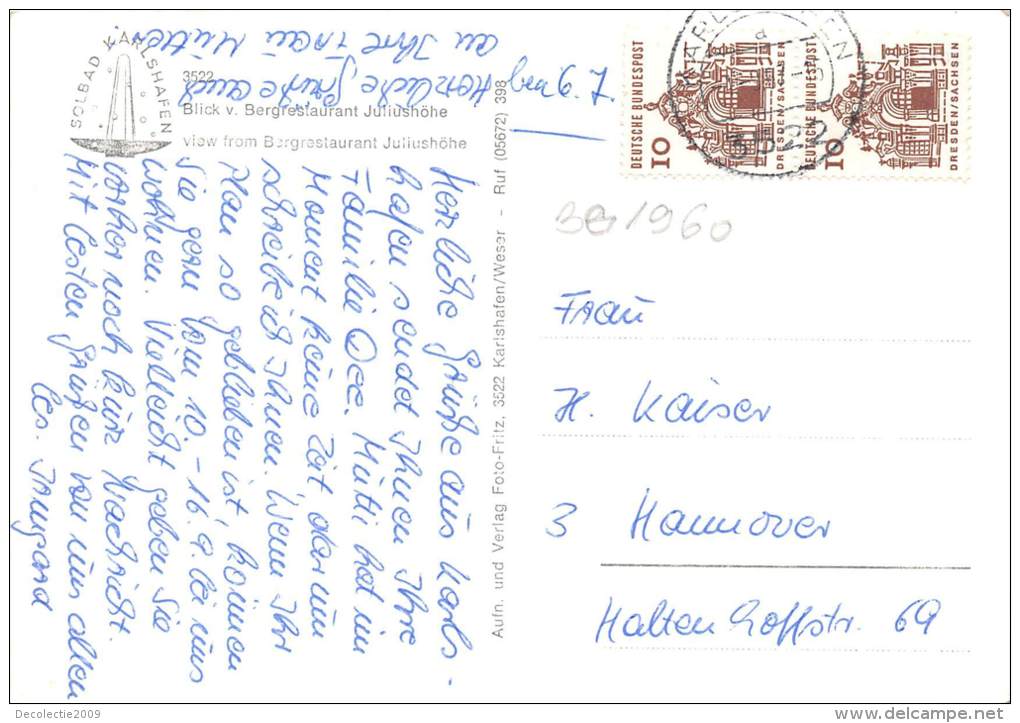 SOLBAD KARLSHAFEN
3522
Blick v. Bergrestaurant Juliushöhe
view from Bergrestaurant Juliushöhe
6. 7.
Herzliche Grüße aus Karls-
hafen sendet Ihnen Ihre
Familie
Mutti hat im
Moment keine Zeit darum
schreibe ich Ihnen. Wenn Ihr
Plan so geblieben ist, können
Sie gern vom 10. - 16.9. bei uns
wohnen. Vielleicht geben Sie
vorher noch kurz Nachricht.
Mit besten Grüßen von uns allen
bes. Irmgard
Herzliche Grüße auch
an Ihre Frau Mutter
Aufn. und Verlag Foto-Fritz, 3522 Karlshafen/Weser - Ruf (05672) 398
DEUTSCHE BUNDESPOST
10
DRESDEN/SACHSEN
DEUTSCHE BUNDESPOST
10
DRESDEN/SACHSEN
3522
1960
Frau
H. Kaiser
3 Hannover
Haltenhoffstr. 69
Decolectie2009